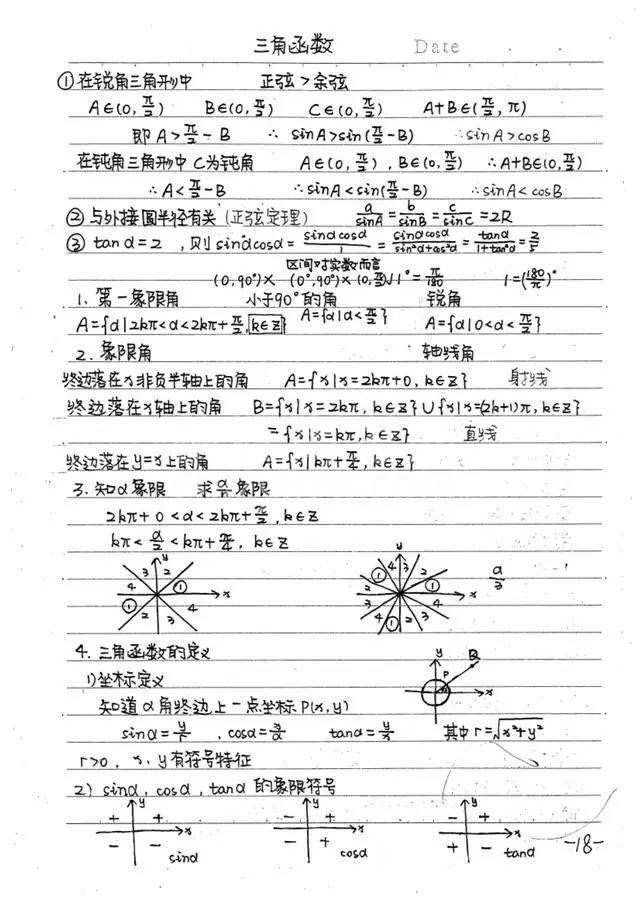 三角函数 Date
①在锐角三角形中 正弦>余弦
A∈(0,π/2) B∈(0,π/2) C∈(0,π/2) A+B∈(π/2,π)
即A>π/2-B ∴sinA>sin(π/2-B) ∴sinA>cosB
在钝角三角形中C为钝角 A∈(0,π/2),B∈(0,π/2) ∴A+B∈(0,π/2)
∴A<π/2-B ∴sinA<sin(π/2-B) ∴sinA<cosB
②与外接圆半径有关(正弦定理) a/sinA=b/sinB=c/sinC=2R
③tanα=2,则sinαcosα=sinαcosα/1=sinαcosα/(sin²α+cos²α)=tanα/(1+tan²α)=2/5
区间对实数而言
(0,90°)× (0°,90°)× (0,π/2)√ 1°=π/180 1=(180/π)°
1.第一象限角 小于90°的角 锐角
A={α|2kπ<α<2kπ+π/2,k∈Z} A={α|α<π/2} A={α|0<α<π/2}
2.象限角 轴线角
终边落在x非负半轴上的角 A={x|x=2kπ+0,k∈Z} 射线
终边落在x轴上的角 B={x|x=2kπ,k∈Z}∪{x|x=(2k+1)π,k∈Z}
={x|x=kπ,k∈Z} 直线
终边落在y=x上的角 A={x|kπ+π/4,k∈Z}
3.知α象限 求α/n象限
2kπ+0<α<2kπ+π/2,k∈Z
kπ<α/2<kπ+π/4,k∈Z
y x 3 2 4 ① ① 4 2 3
y x 4 3 ① 2 2 ① 3 3 4 4 ① 2 α/3
4.三角函数的定义
1)坐标定义 y x P B
知道α角终边上一点坐标P(x,y)
sinα=y/r,cosα=x/r tanα=y/x 其中r=√(x²+y²)
r>0,x,y有符号特征
2)sinα,cosα,tanα的象限符号
y + + x - - sinα
y - + x - + cosα
y - + x + - tanα
-18-